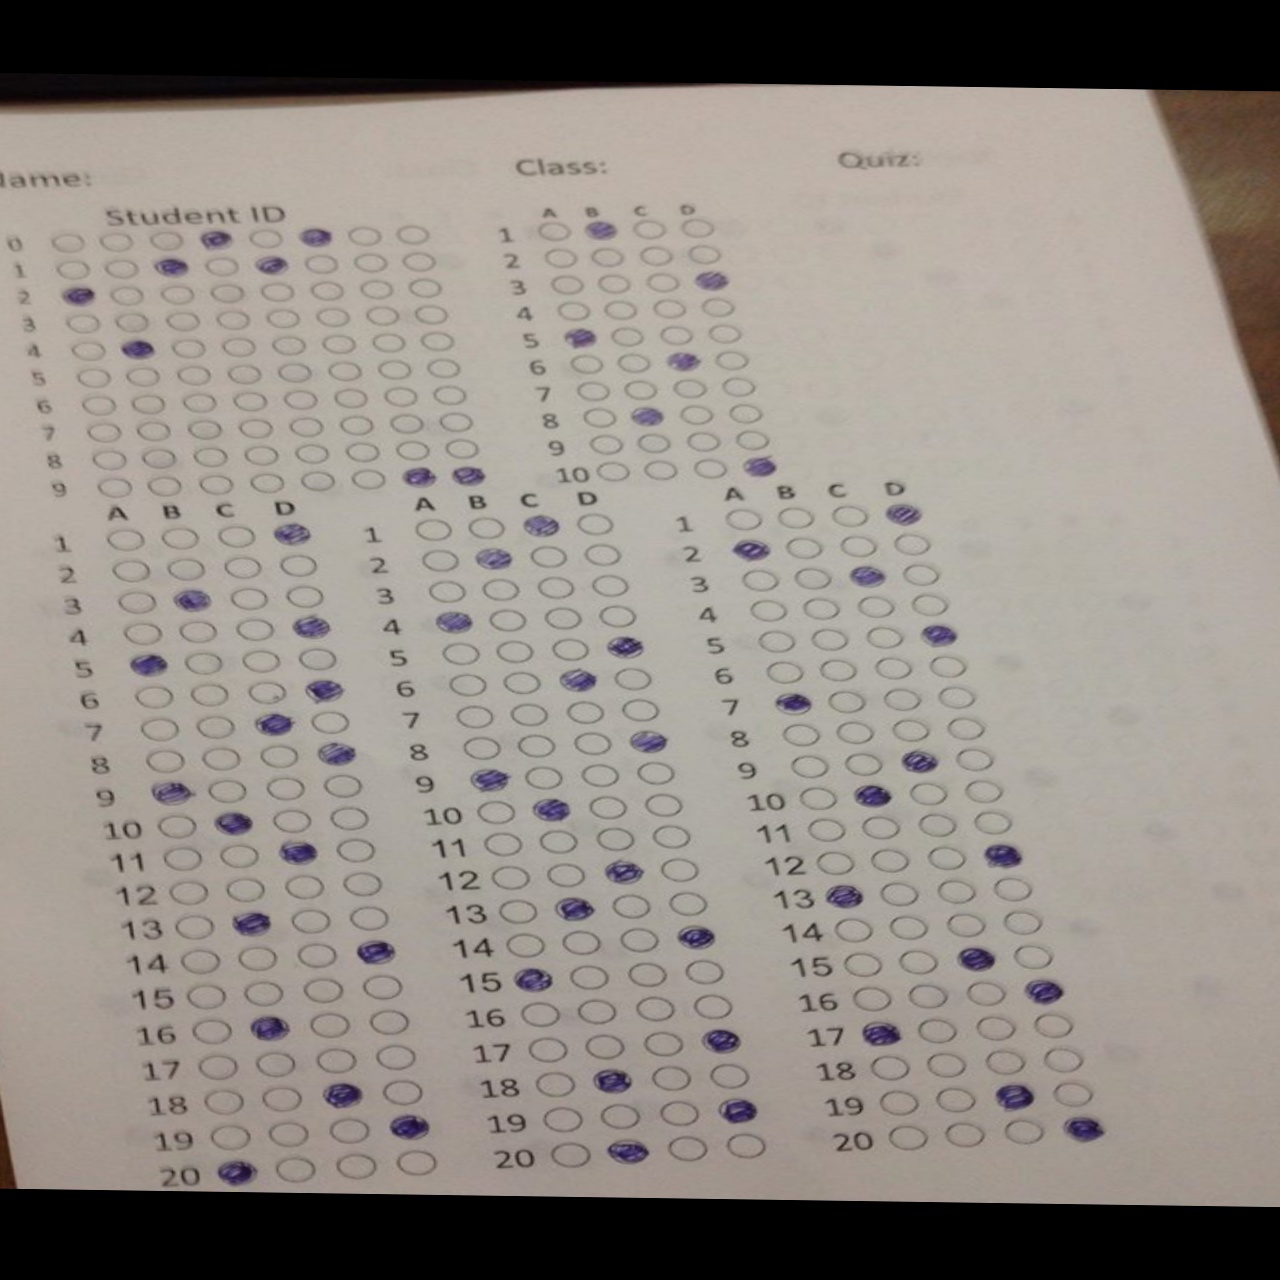 Name: Class: Quiz:
Student ID
0
1
2
3
4
5
6
7
8
9
A B C D
1
2
3
4
5
6
7
8
9
10
A B C D
1
2
3
4
5
6
7
8
9
10
11
12
13
14
15
16
17
18
19
20
A B C D
1
2
3
4
5
6
7
8
9
10
11
12
13
14
15
16
17
18
19
20
A B C D
1
2
3
4
5
6
7
8
9
10
11
12
13
14
15
16
17
18
19
20